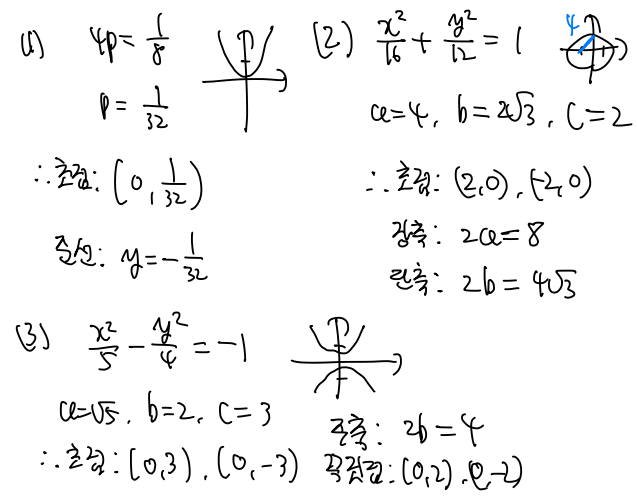 (1) 4p = 1/8
p = 1/32
∴ 초점: (0, 1/32)
준선: y = -1/32
(2) x²/16 + y²/12 = 1
4
a=4, b=2√3, c=2
∴ 초점: (2,0), (-2,0)
장축: 2a=8
단축: 2b=4√3
(3) x²/5 - y²/4 = -1
a=√5, b=2, c=3
∴ 초점: (0,3), (0,-3)
주축: 2b=4
꼭짓점: (0,2), (0,-2)